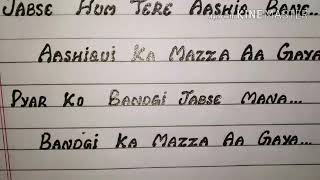 MADE WITH KINEMASTER
JABSE HUM TERE AASHIQ BANE...
AASHIQUI KA MAZZA AA GAYA
PYAR KO BANDGI JABSE MANA...
BANDGI KA MAZZA AA GAYA...